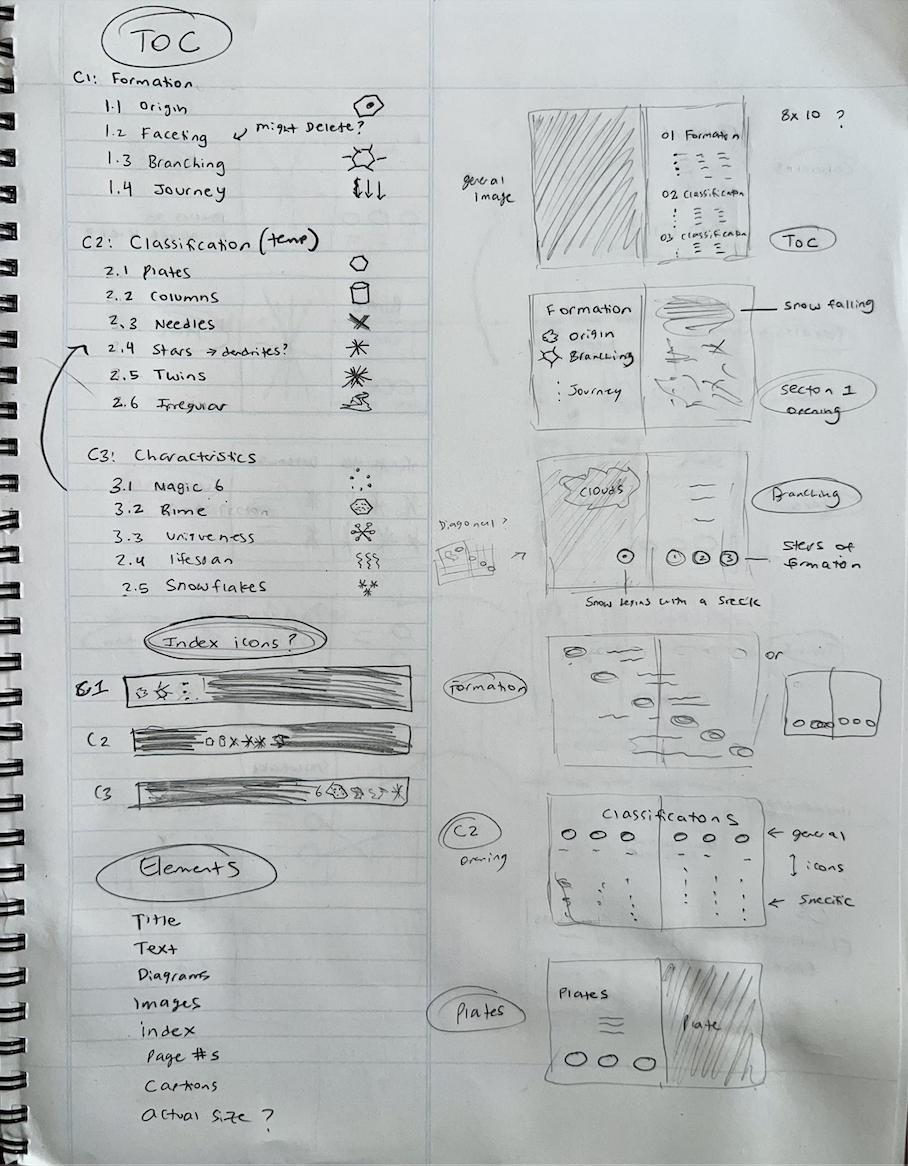 TOC
C1: Formation
1.1 Origin
1.2 Faceting
might Delete?
1.3 Branching
1.4 Journey
C2: Classification (temp)
2.1 Plates
2.2 Columns
2.3 Needles
2.4 Stars → dendrites?
2.5 Twins
2.6 Irregular
C3: Characteristics
3.1 Magic 6
3.2 Rime
3.3 Uniqueness
2.4 lifespan
2.5 Snowflakes
Index icons?
C1
C2
C3
6
Elements
Title
Text
Diagrams
Images
index
Page #s
Captions
Actual Size?
8x10 ?
general
Image
01 Formation
02 Classification
03 Classification
TOC
Formation
Origin
Branching
Journey
Snow falling
Section 1
opening
Clouds
Branching
Diagonal?
1 2 3
Steps of
formation
Snow begins with a speck
Formation
or
C2
opening
Classifications
← general
icons
← Specific
Plates
Plates
Plate